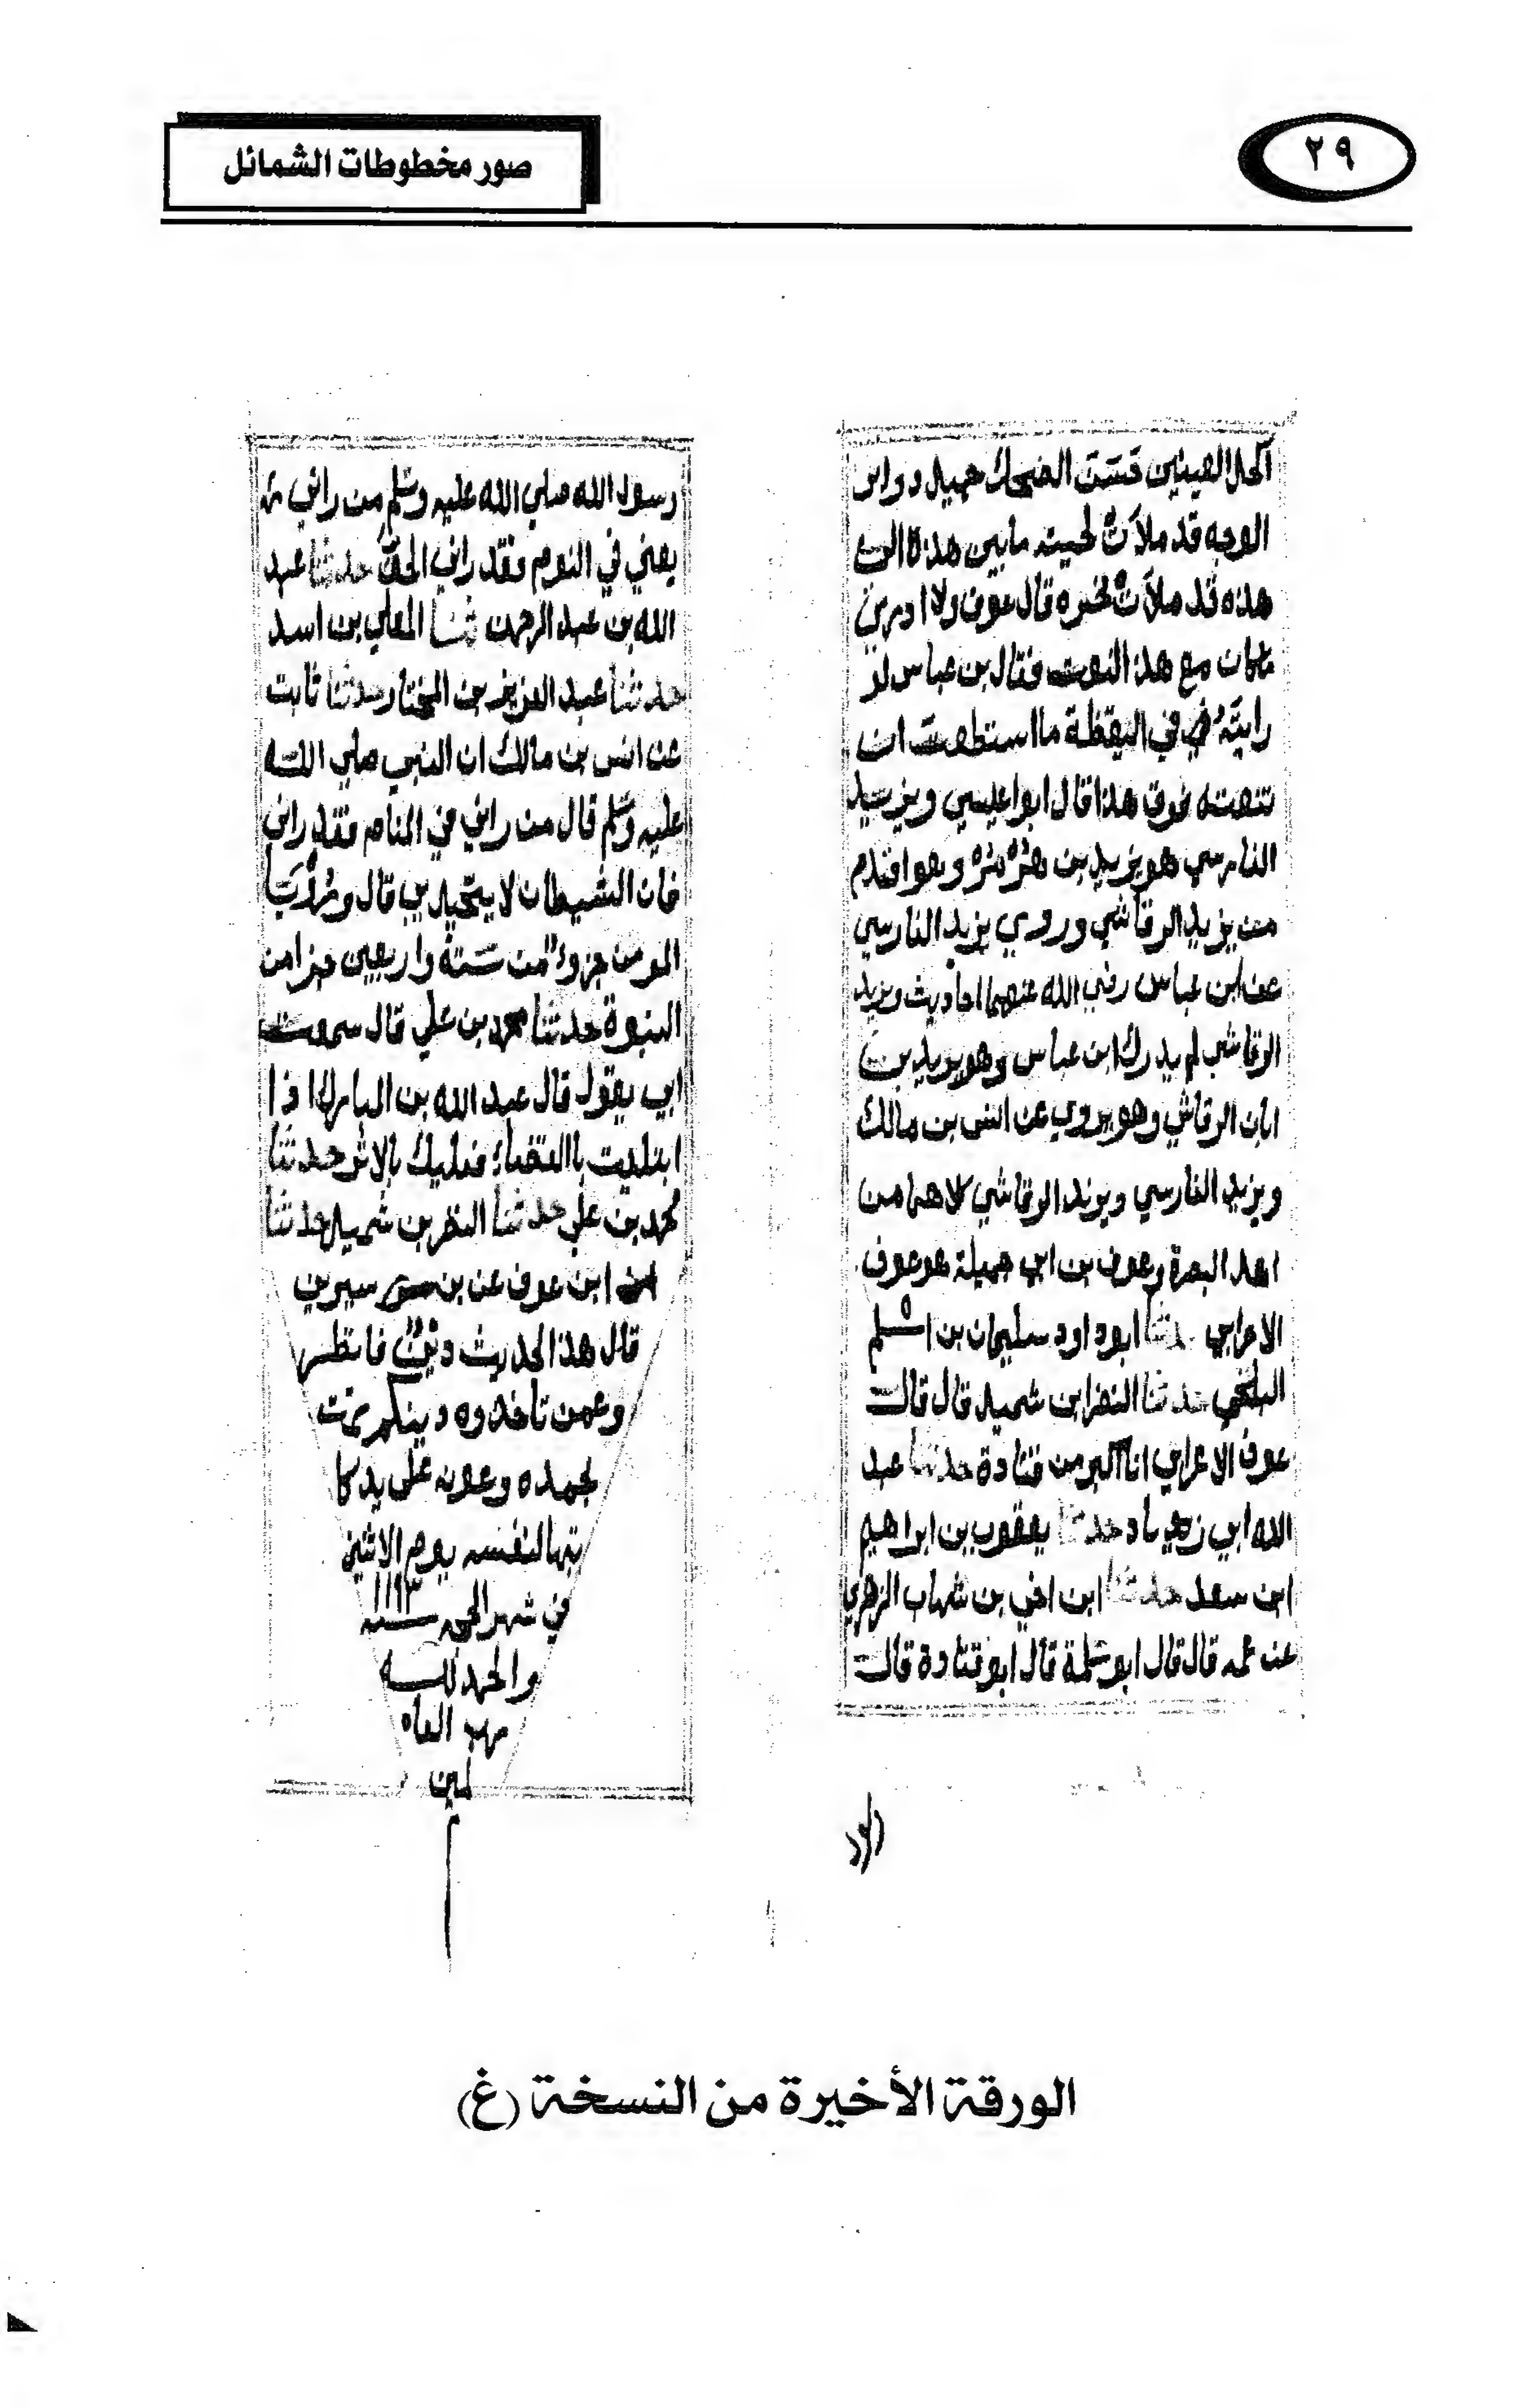 ٢٩
صور مخطوطات الشمائل
اكحل العينين حسن الضحك جميل دواير
الوجه قد ملأت لحيته ما بين هذه الى
هذه قد ملأت نحره قال عوف ولا ادري
ما كان مع هذا النعت فقال بن عباس لو
رايته في اليقظة ما استطعت ان
تنعته فوق هذا قال ابوا عيسي ويزيد
الفارسي هو يزيد بن هرمز وهو اقدم
من يزيد الرقاشي وروي يزيد الفارسي
عن ابن عباس رضي الله عنهما احاديث ويزيد
الرقاشي لم يدرك ابن عباس وهو يزيد بن
ابان الرقاشي وهو يروي عن انس بن مالك
ويزيد الفارسي ويزيد الرقاشي كلاهما من
اهل البصرة وعوف بن ابي جميلة هو عوف
الاعرابي حدثنا ابو داود سليمان بن اسلم
البلخي حدثنا النضر ابن شميل قال قال
عوف الاعرابي انا اكبر من قتادة حدثنا عبد
الله ابي زياد حدثنا يعقوب بن ابراهيم
ابن سعد حدثنا ابن اخي بن شهاب الزهري
عن عمه قال قال ابو سلمة قال ابو قتادة قال
رسول الله صلي الله عليه وسلم من راني
يعني في النوم فقد راني الحق حدثنا عبد
الله بن عبد الرحمن ثنا المعلي بن اسد
حدثنا عبد العزيز بن المختار حدثنا ثابت
عن انس بن مالك ان النبي صلي الله
عليه وسلم قال من راني في المنام فقد راني
فان الشيطان لا يتخيل بي قال ورؤيا
المومن جزو من ستة واربعين جزا من
النبوة حدثنا محمد بن علي قال سمعت
ابي يقول قال عبد الله بن المبارك اذا
ابتليت باالقضاء فعليك بالاثر حدثنا
محمد بن علي حدثنا النضر بن شميل حدثنا
ابن عوف عن بن سيرين
قال هذا الحديث دين فانظرا
وعمن تاخذوه دينكم تمت
بحمده وعونه على يد كا
تبها لنفسه يوم الاثنين
في شهر الحجه سنه ١١٩٣
والحمد لله
رب العا
لمين
الورقة الأخيرة من النسخة (غ)